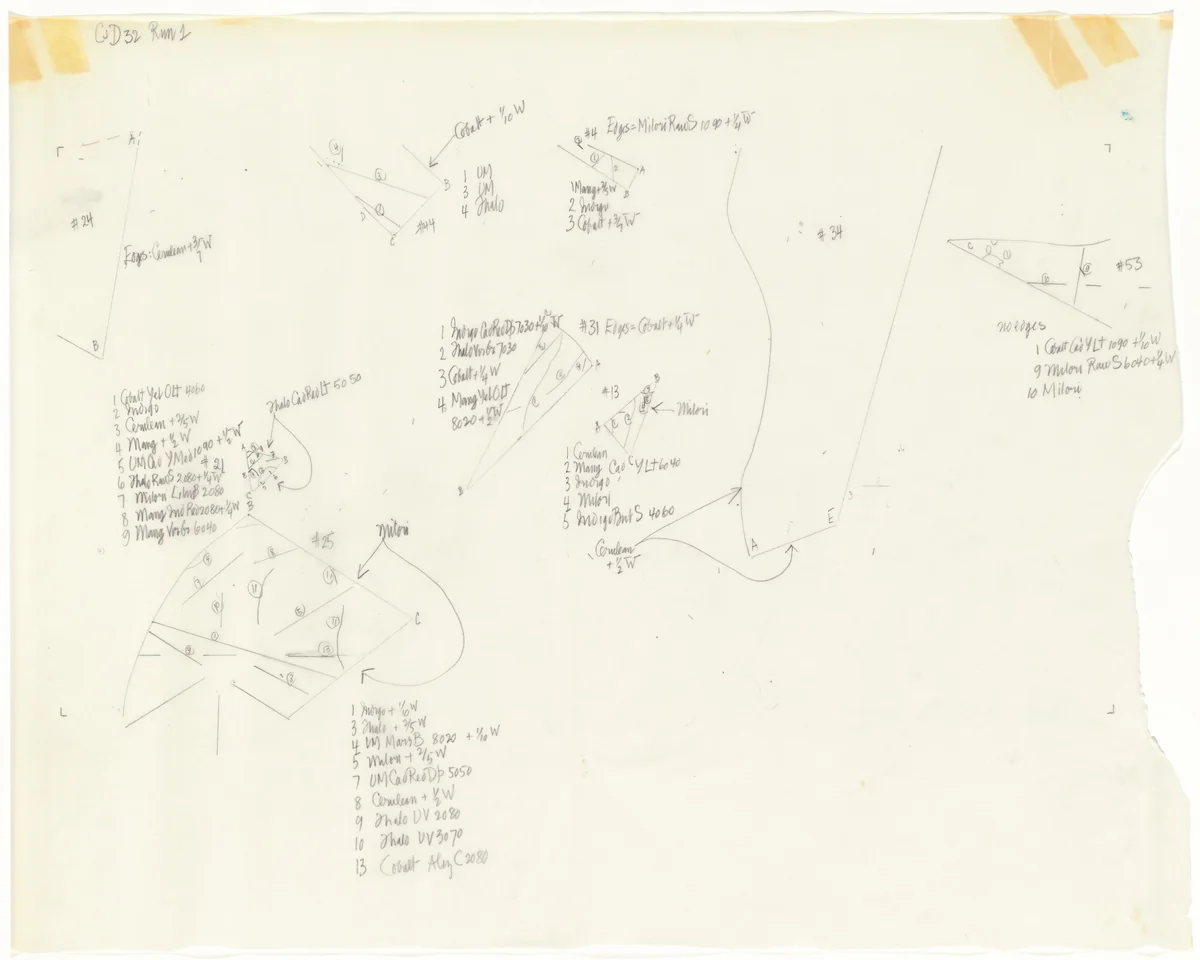 CJD 32 Run 1
A
#24
Edges: Cerulean + 3/7 W
B
Cobalt + 1/10 W
1 UM
3 UM
4 Thalo
B
D
C
#44
#4 Edges = Milori Raw S 1090 + 1/4 W
1
2
A
B
1 Mang + 2/5 W
2 Indigo
3 Cobalt + 3/7 W
#34
A
E
Cerulean
+ 1/2 W
C
#53
no edges
1 Cobalt Cad Y Lt 1090 + 1/10 W
9 Milori Raw S 6040 + 1/4 W
10 Milori
1 Indigo Cad Red Dp 7030 + 1/10 W
2 Thalo Ver Gr 7030
3 Cobalt + 1/4 W
4 Mang Yel O Lt
8020 + 1/2 W
#31 Edges = Cobalt + 1/4 W
A
B
#13
B
A
C
Milori
1 Cerulean
2 Mang Cad Y Lt 6040
3 Indigo
4 Milori
5 Indigo Bnt S 4060
1 Cobalt Yel O Lt 4060
2 Indigo
3 Cerulean + 2/5 W
4 Mang + 1/2 W
5 UM Cad Y Med 1090 + 1/2 W
6 Thalo Raw S 2080 + 1/4 W
7 Milori 2080
8 Mang Ind Red 2080 + 1/4 W
9 Mang Ver Gr 6040
#21
Thalo Cad Red Lt 5050
B
#25
Milori
C
1 Indigo + 1/6 W
3 Thalo + 2/5 W
4 UM Mars B 8020 + 1/10 W
5 Milori + 2/5 W
7 UM Cad Red Dp 5050
8 Cerulean + 1/2 W
9 Thalo UV 2080
10 Thalo UV 3070
13 Cobalt Aliz C 2080